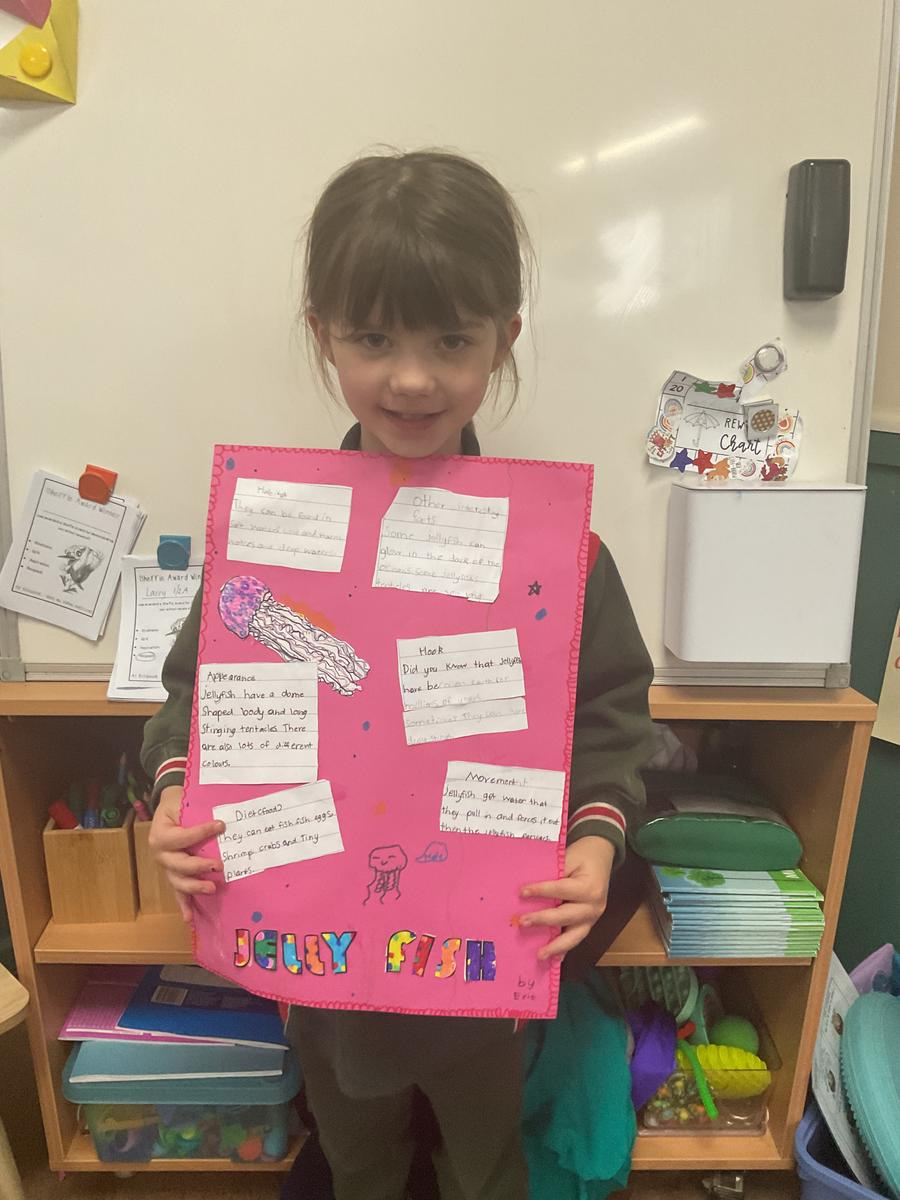 Habitat
They can be found in
salt water and warm
waters and deep waters
Other interesting
facts
Some Jellyfish can
glow in the dark of the
oceans. Some Jellyfishs
tentacles are
Hook
Did you know that Jellyfish
have been on earth for
millions of years
sometimes they can
Appearance
Jellyfish have a dome
Shaped body and long
Stinging tentacles There
are also lots of different
colours.
Movement
Jellyfish get water that
they pull in and forces it out
then the jellyfish
Diet (food)
They can eat fish, fish eggs,
Shrimp, crabs and Tiny
plants.
JELLY FISH
by
Sherrie Award Winner
Sherrie Award Win
Larry 1/2A
1
20
REW
Chart